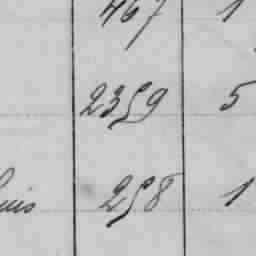 467 1
2359 5
258 1